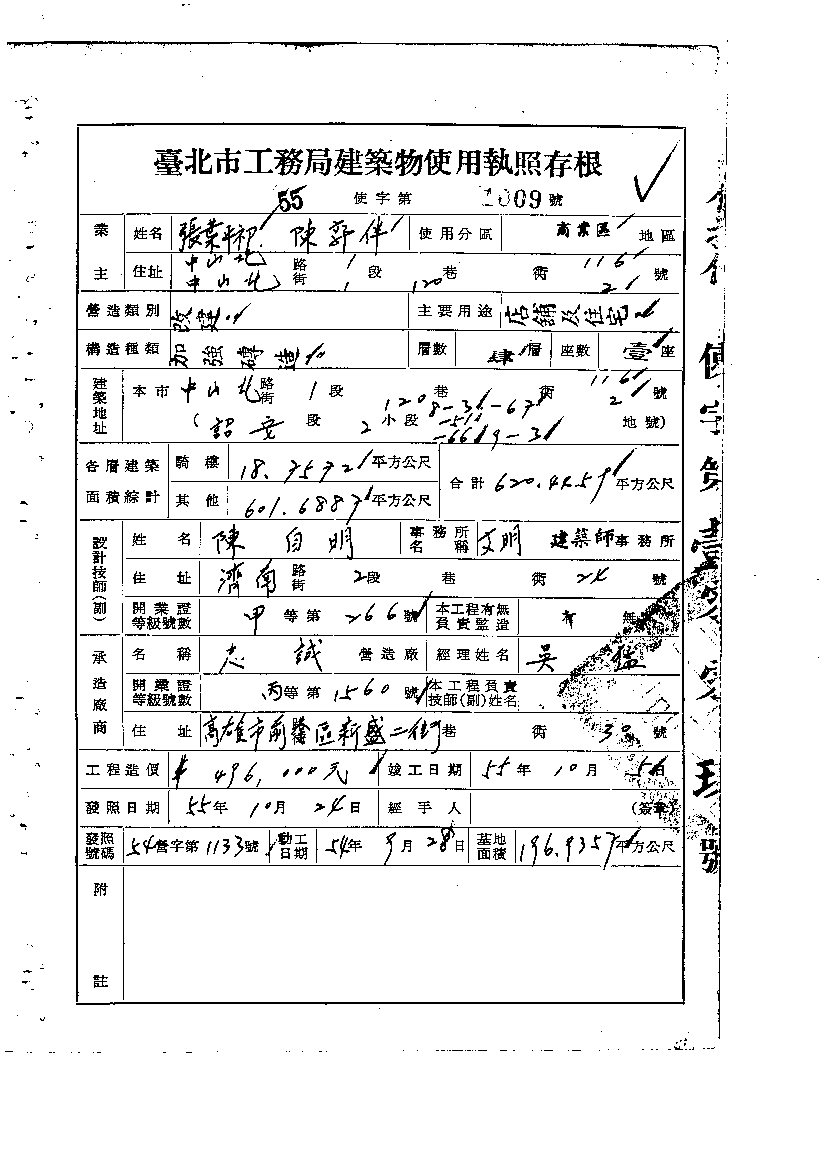 臺北市工務局建築物使用執照存根
55 使字第 1009 號
業主 姓名 陳 使用分區 商業區 地區
住址 中山北 路街 1 段 116 號
中山北 1 120 巷 衖 2
營造類別 改建 主要用途 店鋪及住宅
構造種類 加強磚造 層數 肆 層 座數 壹 座
建築地址 本市 中山北 路街 1 段 120 巷 衖 116 號
2
( 段 2 小段 地號)
各層建築面積綜計 騎樓 平方公尺 合計 平方公尺
其他 平方公尺
設計技師(副) 姓名 陳自明 事務所名稱 文明 建築師事務所
住址 濟南 路街 2段 巷 衖 24 號
開業證等級號數 甲 等第 266 號 本工程有無負責監造 有 無
承造廠商 名稱 志誠 營造廠 經理姓名 吳猛
開業證等級號數 丙 等第 1560 號 本工程負責技師(副)姓名
住址 高雄市前 區新盛二街 巷 衖 30 號
工程造價 496,000元 竣工日期 55年 10月 5日
發照日期 55年 10月 24日 經手人 (簽章)
發照號碼 54營字第1133號 動工日期 54年 9月 28日 基地面積 平方公尺
附註
使字第壹零零玖號